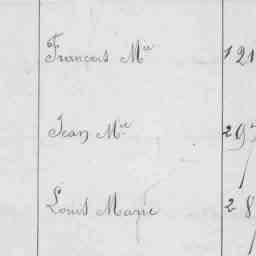 François Mie 121
Jean Mie 297
Louis Marie 28